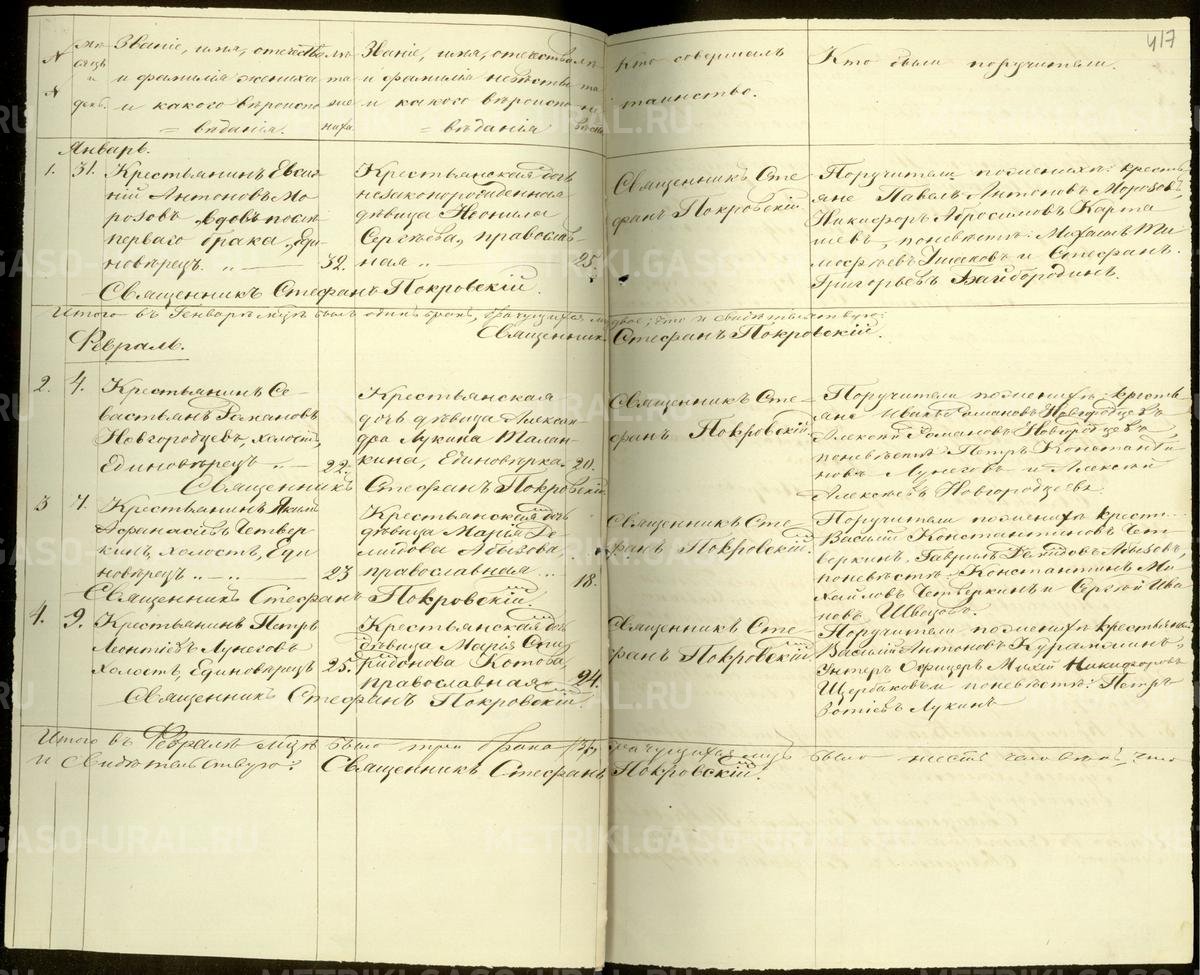 417
№ мѣсяцъ и день.
Званіе, имя, отечество
и фамилія жениха
и какого вѣроиспо
=вѣданія.
лѣта жениха
Званіе, имя, отечество
и фамилія невѣсты
и какого вѣроиспо
=вѣданія
лѣта невѣсты
Кто совершалъ
таинство.
Кто были поручители.
Январь.
1. 31. Крестьянинъ Евси
ній Антоновъ Мо
розовъ, вдовъ послѣ
перваго брака, Еди
новѣрецъ. „ — 32.
Крестьянская дочь
незаконорожденная
дѣвица Неонила
Сергѣева, православ-
ная „ — 25.
Священникъ Сте
фанъ Покровскій
Поручители по женихѣ: кресть
яне Павелъ Антоновъ Морозовъ,
Никифоръ Абросимовъ Карта
шевъ, поневѣстѣ: Михаилъ Ти
мофѣевъ Ушаковъ и Стефанъ.
Григорьевъ Байбородинъ.
Священникъ Стефанъ Покровскій.
Итого въ Генварѣ мцѣ былъ одинъ бракъ, брачущихся двое; что и свидѣтельствую:
Священникъ Стефанъ Покровскій.
Февраль.
2. 4. Крестьянинъ Се-
вастьянъ Романовъ
Новгородцевъ, холостъ,
Единовѣрецъ „ — 22.
Крестьянская
дочь дѣвица Алексан
дра Лукина Талан-
кина, Единовѣрка. 20.
Священникъ Сте=
фанъ Покровскій.
Поручители поженихѣ крестья
яне Иванъ Романовъ Новгородцевъ
Алексѣй Романовъ Новгородцевъ,
поневѣстѣ: Петръ Константи
новъ Лунеговъ и Алексѣй
Алексѣевъ Новгородцевъ.
Священникъ Стефанъ Покровскій
3 7. Крестьянинъ Якимъ
Афанасіевъ Четвер-
кинъ, холостъ, Еди
новѣрецъ „ — „ — 23
Крестьянская дочь
дѣвица Марія Де
мидова Абызова
православная ... 18.
Священникъ Сте
фанъ Покровскій.
Поручители поженихѣ крест...
Василій Константиновъ Чет
веркинъ, Гавріилъ Абызовъ,
поневѣстѣ: Константинъ Ми
хайловъ Четверкинъ и Сергѣй Ива
новъ Швецовъ.
Священникъ Стефанъ Покровскій.
4. 9. Крестьянинъ Петръ
Леонтіевъ Лунеговъ
Холостъ, Единовѣрецъ 25.
Крестьянская дочь
дѣвица Марія Спи
ридонова Котова
православная 24.
Священникъ Сте
фанъ Покровскій
Поручители поженихѣ крестьяне:
Василій Антоновъ
Унтеръ Офицеръ Никифоровъ
Щербаковъ, поневѣстѣ: Петръ
Зотіевъ Лукинъ
Священникъ Стефанъ Покровскій.
Итого въ Февралѣ мцѣ было три брака /3/, брачущихся лицъ было шесть человѣкъ, что
и свидѣтельствую: Священникъ Стефанъ Покровскій.